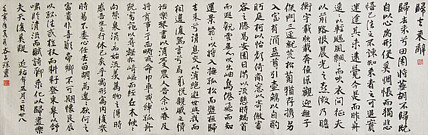 歸去來辭
歸去來兮田園將蕪胡不歸既
自以心為形役奚惆悵而獨悲
悟已往之不諫知來者之可追實
迷途其未遠覺今是而昨非舟
遙遙以輕颺風飄飄而吹衣問征夫
以前路恨晨光之熹微乃瞻
衡宇載欣載奔僮僕歡迎稚子
候門三徑就荒松菊猶存攜
幼入室有酒盈樽引壺觴以自酌眄
庭柯以怡顏倚南窗以寄傲審
容膝之易安園日涉以成趣門雖
設而常關策扶老以流憩時矯首
而遐觀雲無心以出岫鳥倦飛而知
還景翳翳以將入撫孤松而盤桓歸
去來兮請息交以絕遊世與我而
相違復駕言兮焉求悅親戚之情
話樂琴書以消憂農人告余以春及
將有事於西疇或命巾車或棹孤舟
既窈窕以尋壑亦崎嶇而經丘木欣
欣以向榮泉涓涓而始流善萬物之得
時感吾生之行休已矣乎寓形宇內復幾
時曷不委心任去留胡為遑遑欲何之
富貴非吾願帝鄉不可期懷良辰
以孤往或植杖而耘耔登東皋以舒
嘯臨清流而賦詩聊乘化以歸盡樂
夫天命復奚疑